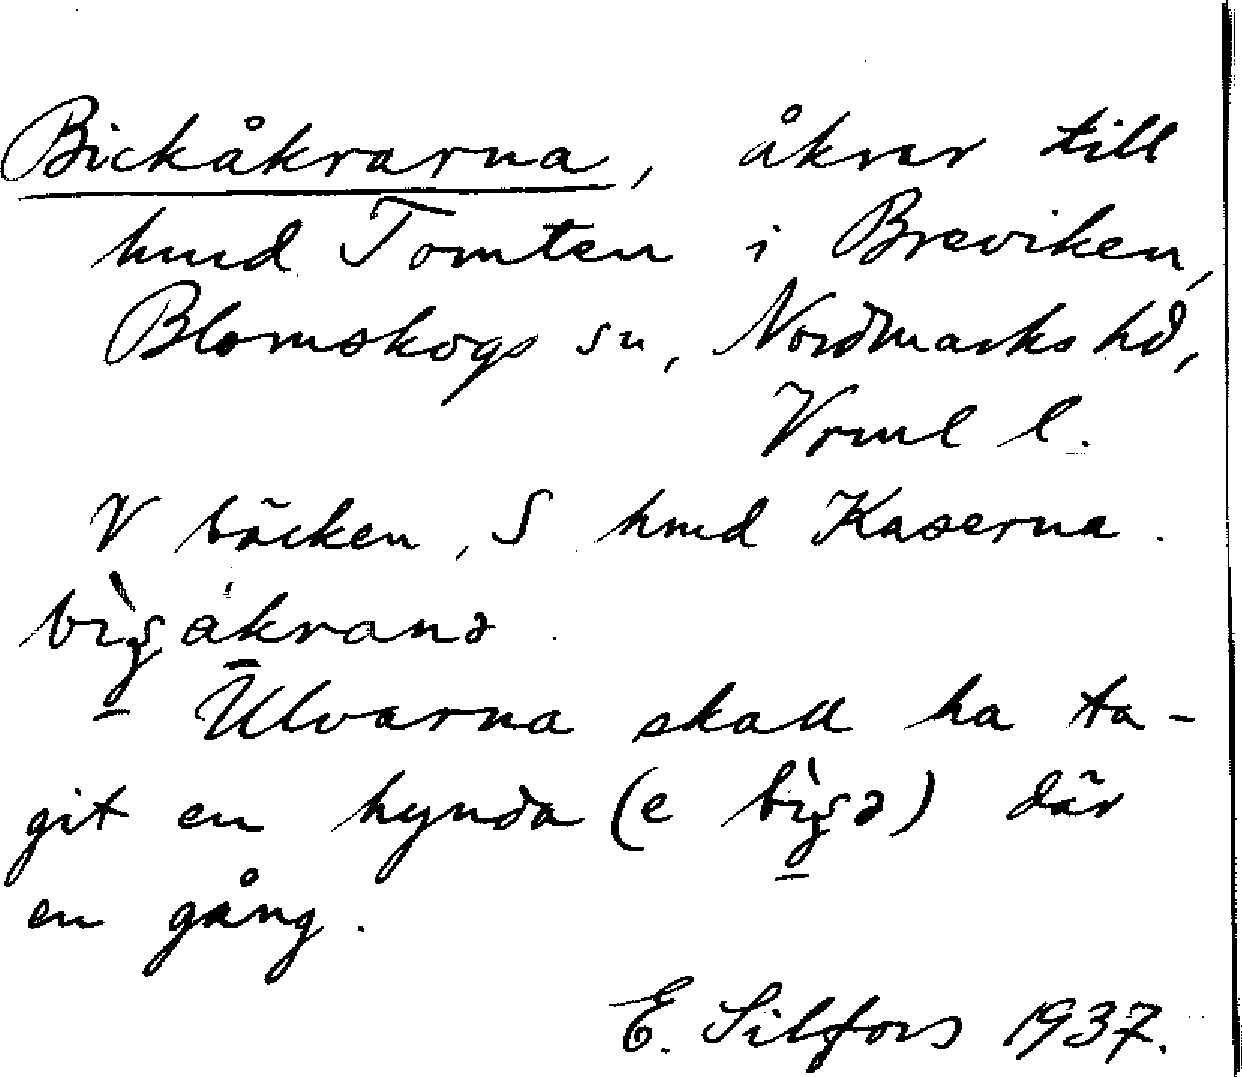 Bickåkrarna, åkrar till
hmd Tomten i Breviken,
Blomskogs sn, Nordmarks hd,
Vrml l.
V bäcken, S hmd Kaserna.
bìg̱åkranə.
Ulvarna skall ha ta-
git en hynda (e bìg̱ə) där
en gång.
E. Silfors 1937.